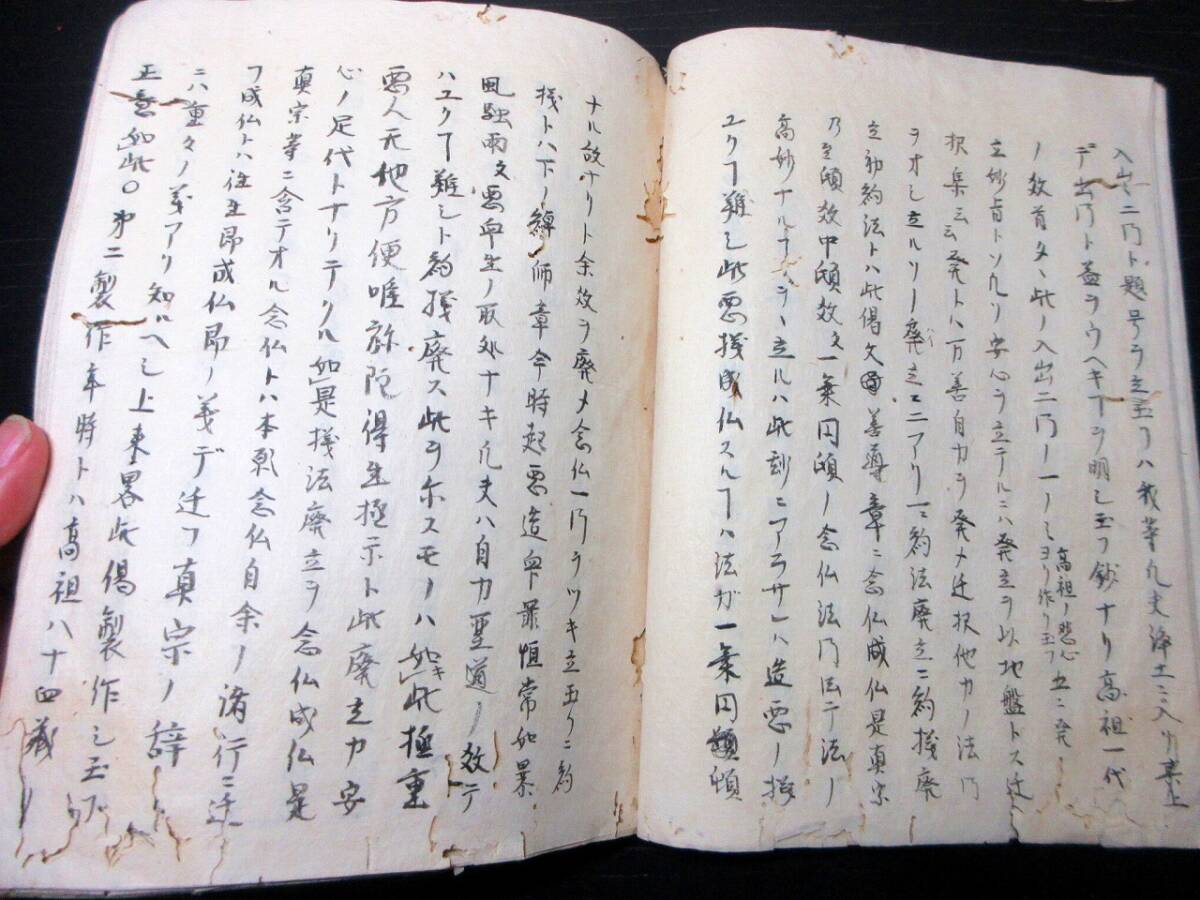 入出二門ト題号ヲ立玉フハ我等凡夫浄土ニ入リ其上
デ出門ト益ヲウヘキヿヲ明シ玉フ鈔ナリ高祖一代
ノ教首タ此ノ入出二門ノ一ノミ
高祖ノ悲心
ヨリ作リ玉フ
立妙旨トソ凡リ安心ヲ立テルニハ廃立ヲ以地盤トス迁
択集云云廃トハ万善自力ヲ廃メ迁択他力ノ法門
ヲオシ立ルリー廃立ニ二アリ一ニ約法廃立二約機廃
立初約法トハ此偈文善導章ニ念仏成仏是真宗
乃至頓教中頓教文一乗円頓ノ念仏法門ニテ法ノ
高妙ナルヿヲ立ルハ此刻ニアラサハ造悪ノ機
ユクヿ難シ此悪機成仏スルヿハ法ガ一乗円頓
ナル故ナリト余教ヲ廃メ念仏一門ヲツキ立玉リ二約
機トハ下ノ綽師章今時起悪造罪恒常如暴
風駛雨文悪衆生ノ取処ナキ凡夫ハ自力聖道ノ教テ
ハユクヿ難シト約機廃ス此ヲ示スモノハ如此極重
悪人无他方便唯弥陀得生極示ト此廃立カ安
心ノ足代トナリテクル如是機法廃立ヲ念仏成仏是
真宗等ニ含テオル念仏トハ本願念仏自余ノ諸行ニ迁
フ成仏トハ往生即成仏即ノ義デ迁フ真宗ノ辞
ニハ重々ノ義アリ知ルヘシ上来畧此偈製作シ玉フ
正意如此〇第二製作年時トハ高祖八十四歳ノ